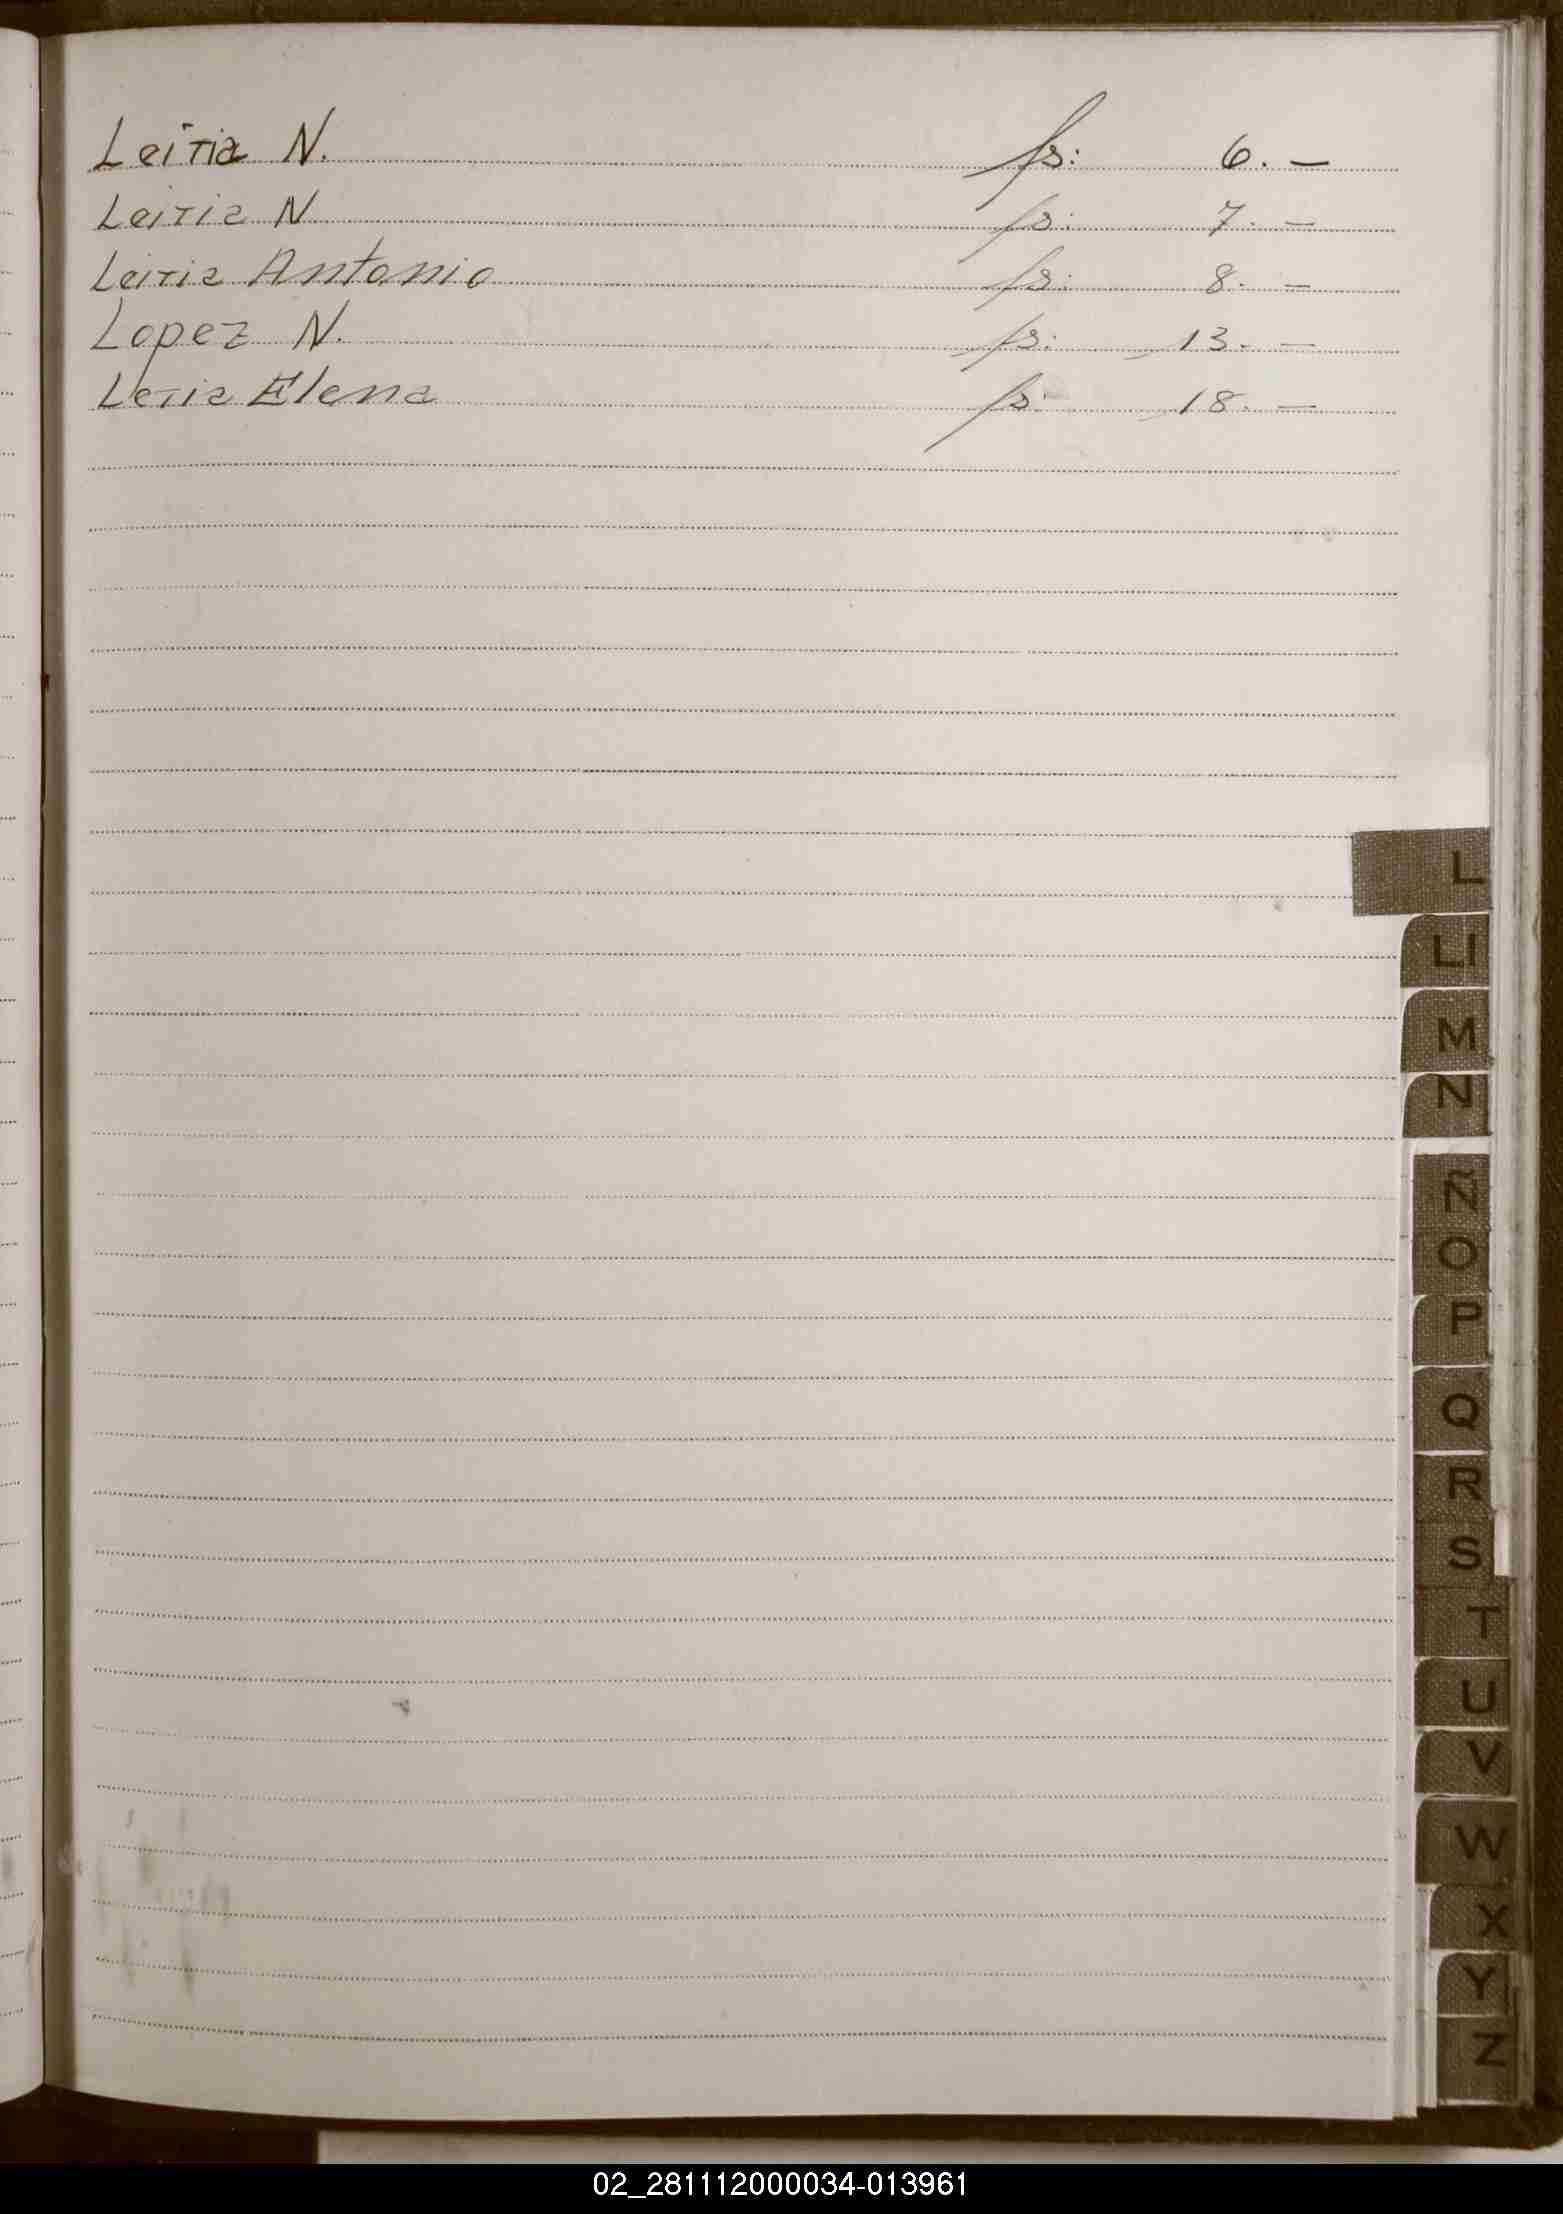 Leitia N. fs: 6. —
Leitia N fs: 7. —
Leitia Antonio fs: 8. —
Lopez N. fs: 13. —
Letia Elena fs: 18. —
L
LI
M
N
Ñ
O
P
Q
R
S
T
U
V
W
X
Y
Z
02_281112000034-013961